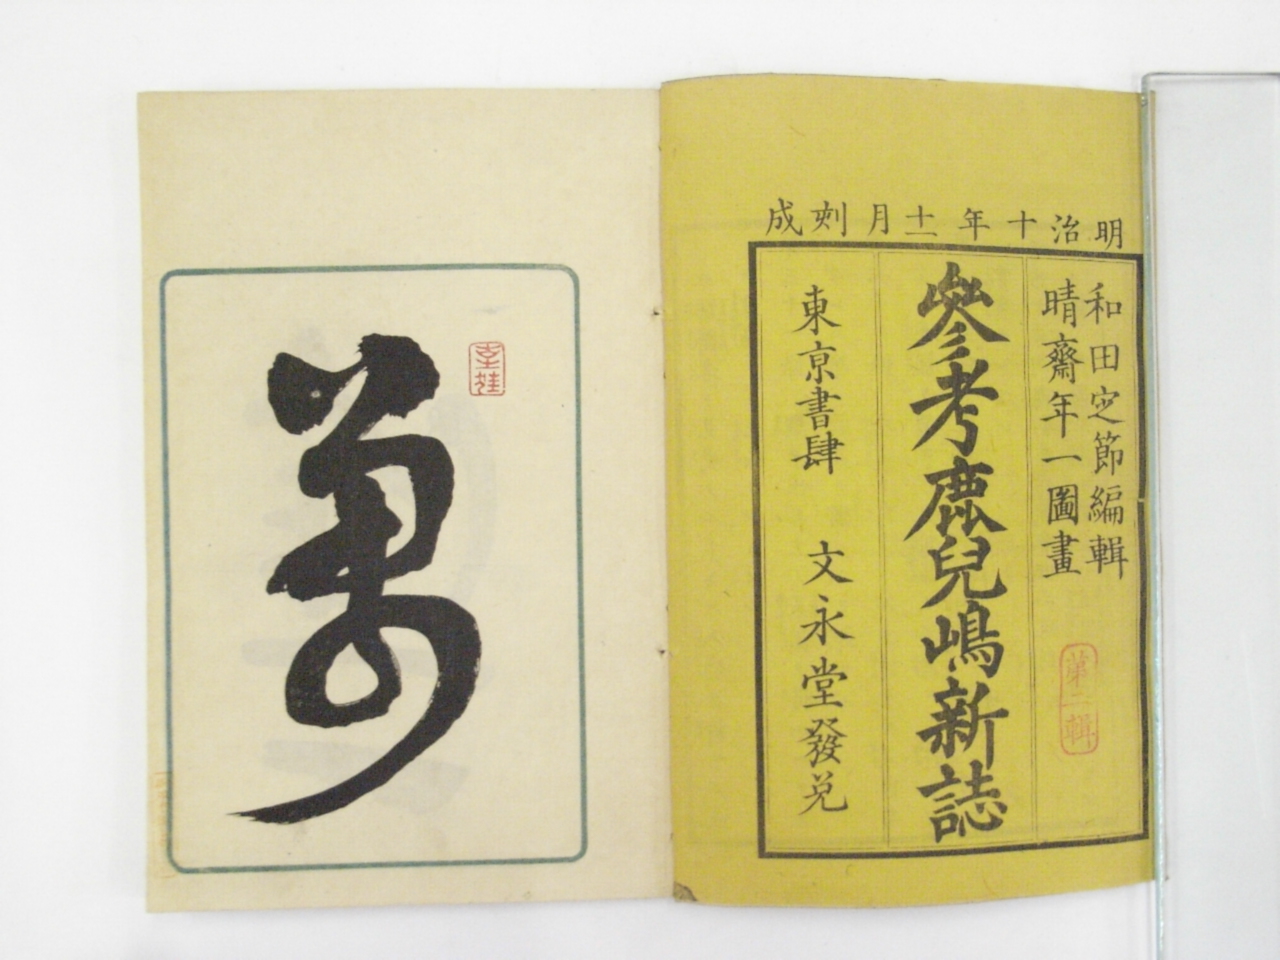 明治十年十一月刻成
和田定節編輯
晴齋年一圖畫
第二輯
參考鹿兒嶋新誌
東京書肆　文永堂發兌
萬